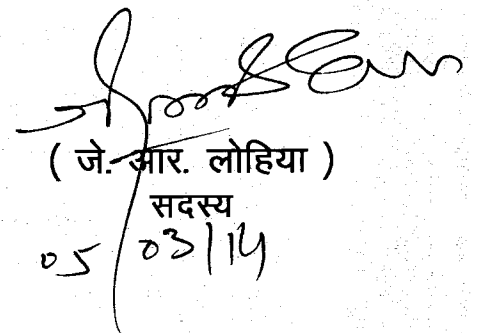 ( जे. आर. लोहिया )
सदस्य
05/03/14